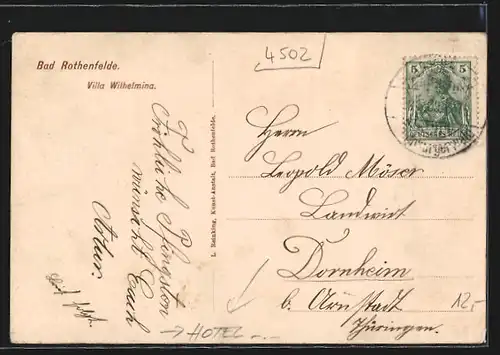 Bad Rothenfelde.
Villa Wilhelmina.
4502
5 5
Fröhliche Pfingsten
wünscht Euch
Artur.
L. Reinking, Kunst-Anstalt, Bad Rothenfelde.
Herrn
Leopold Möser
Landwirt
Dornheim
b. Arnstadt
Thüringen.
12,-
→ HOTEL